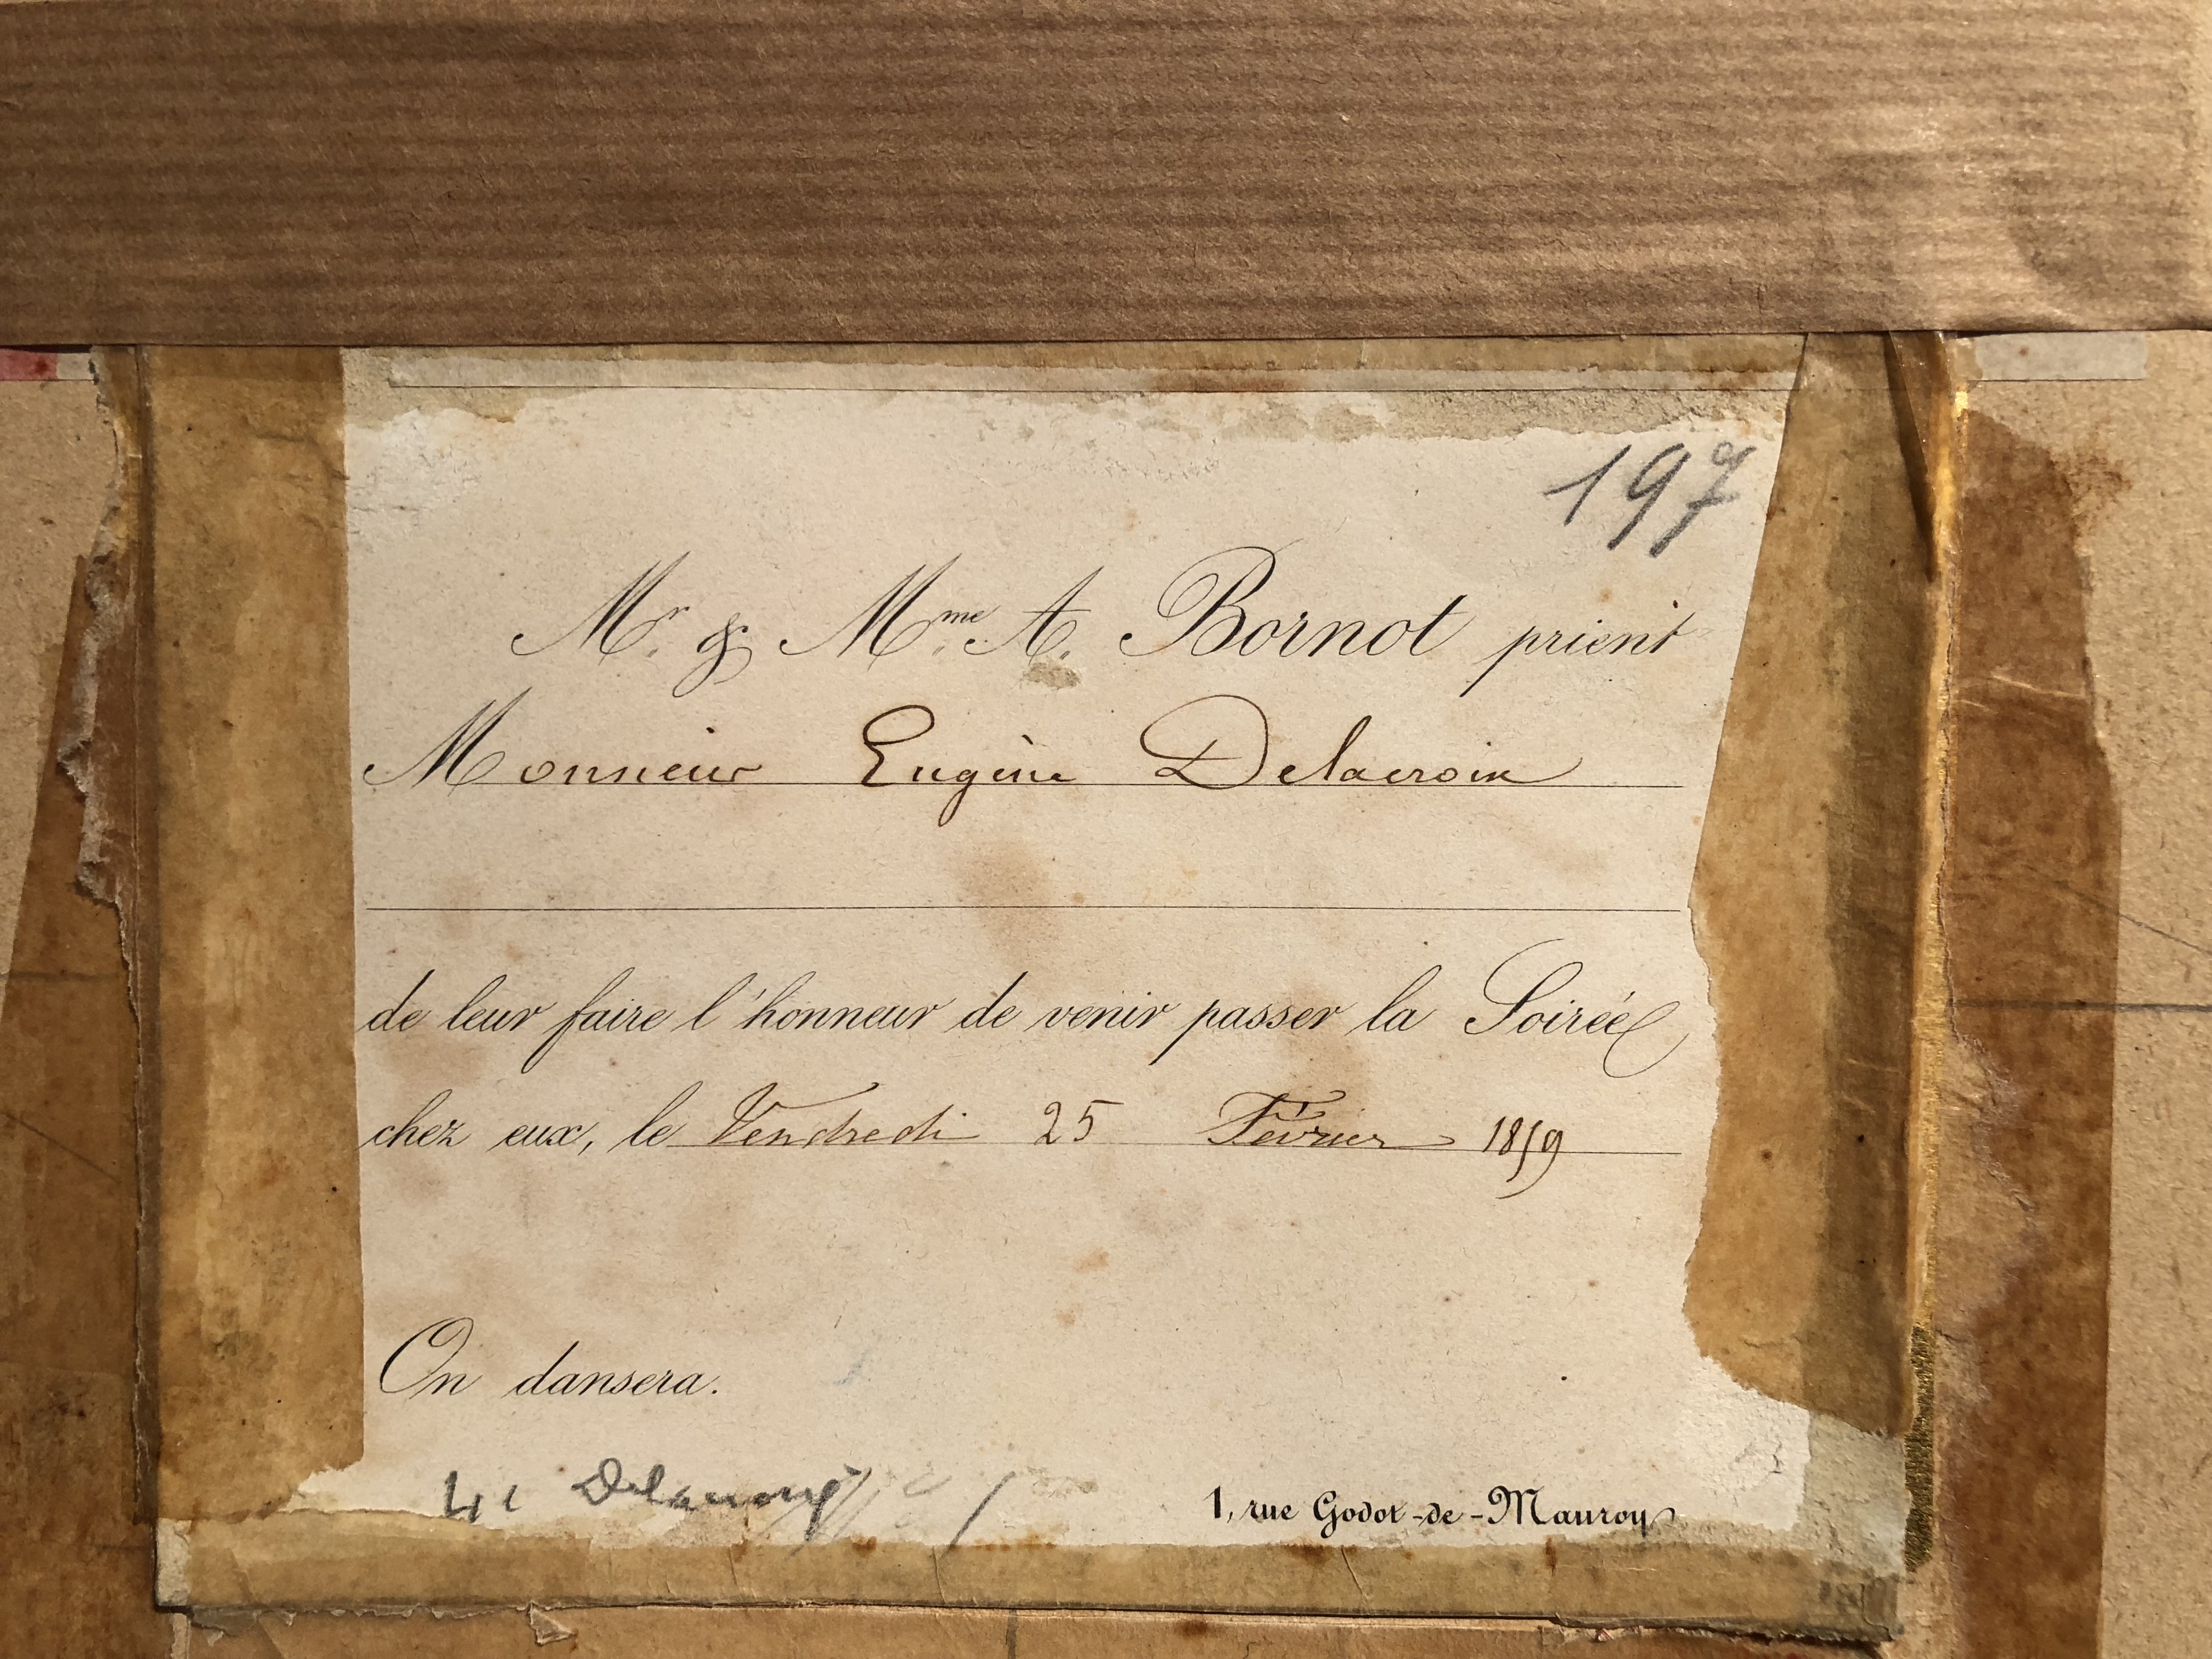 197
Mr. & Mme. A. Bornot prient
Monsieur Eugène Delacroix
de leur faire l'honneur de venir passer la Soirée
chez eux, le Vendredi 25 Février 1859
On dansera.
1, rue Godot-de-Mauroy